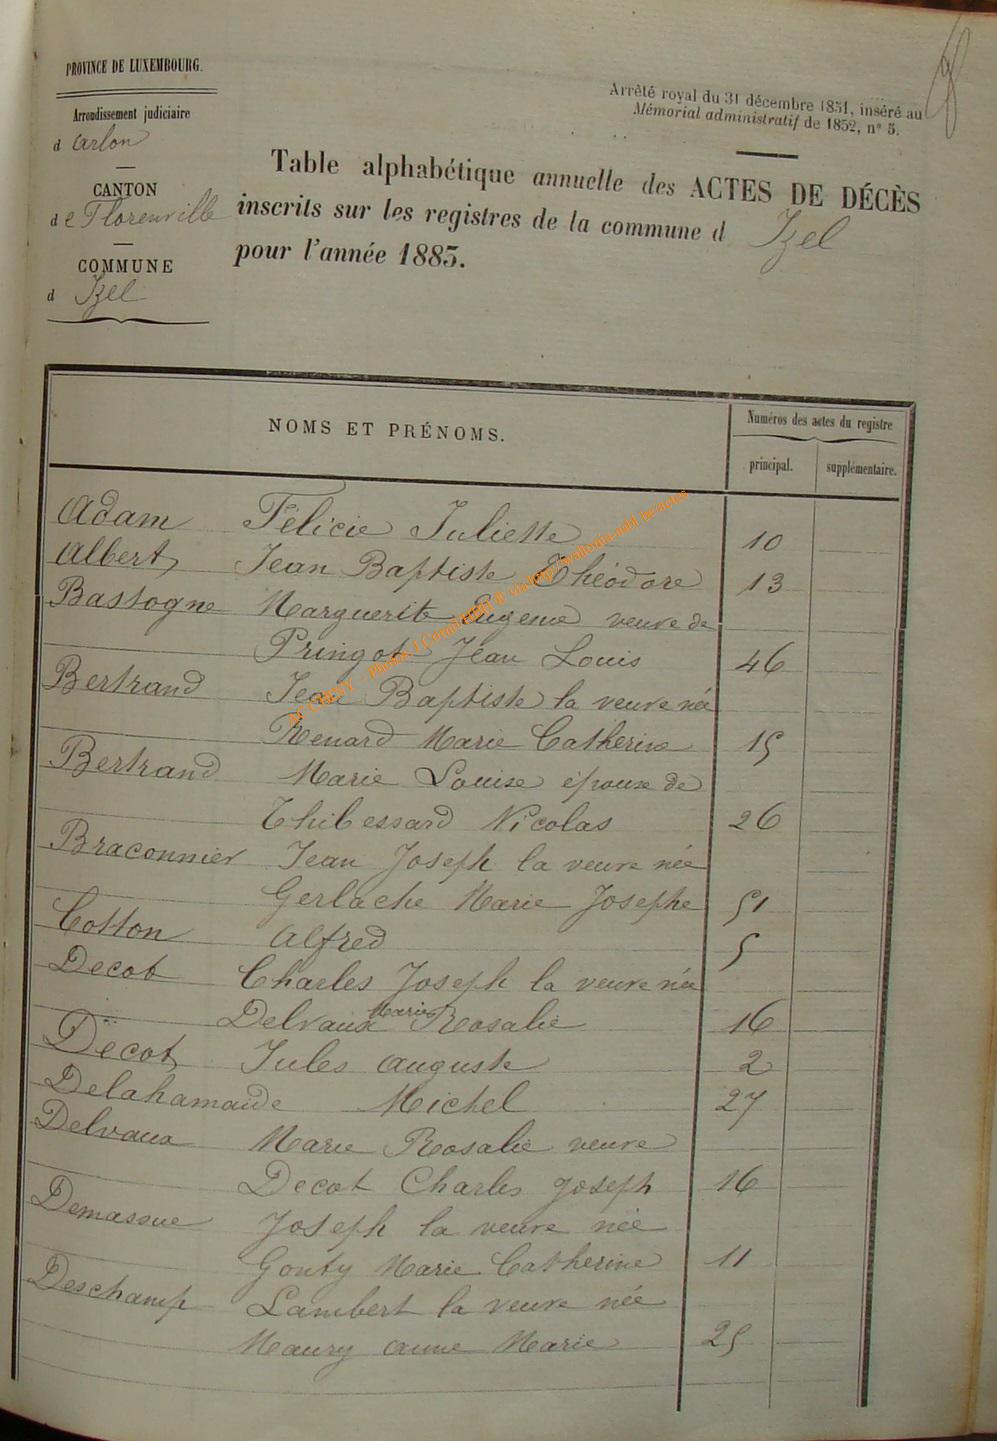 PROVINCE DE LUXEMBOURG.
Arrondissement judiciaire
d Arlon
CANTON
de Florenville
COMMUNE
d Izel
Arrêté royal du 31 décembre 1851, inséré au
Mémorial administratif de 1852, n° 5.
Table alphabétique annuelle des ACTES DE DÉCÈS
inscrits sur les registres de la commune d Izel
pour l'année 1885.
NOMS ET PRÉNOMS.
Numéros des actes du registre
principal. supplémentaire.
Adam Félicie Juliette 10
Albert Jean Baptiste Théodore 13
Bastogne Marguerite Eugenie veuve de
Pringot Jean Louis 46
Bertrand Jean Baptiste la veuve née
Renard Marie Catherine 15
Bertrand Marie Louise épouse de
Thibessard Nicolas 26
Braconnier Jean Joseph la veuve née
Gerlache Marie Josephe 51
Cotton Alfred 5
Decot Charles Joseph la veuve née
Delvaux Marie Rosalie 16
Decot Jules Auguste 2
Delahamaide Michel 27
Delvaux Marie Rosalie veuve
Decot Charles Joseph 16
Demassue Joseph la veuve née
Gouty Marie Catherine 11
Deschamp Lambert la veuve née
Maury Anne Marie 25